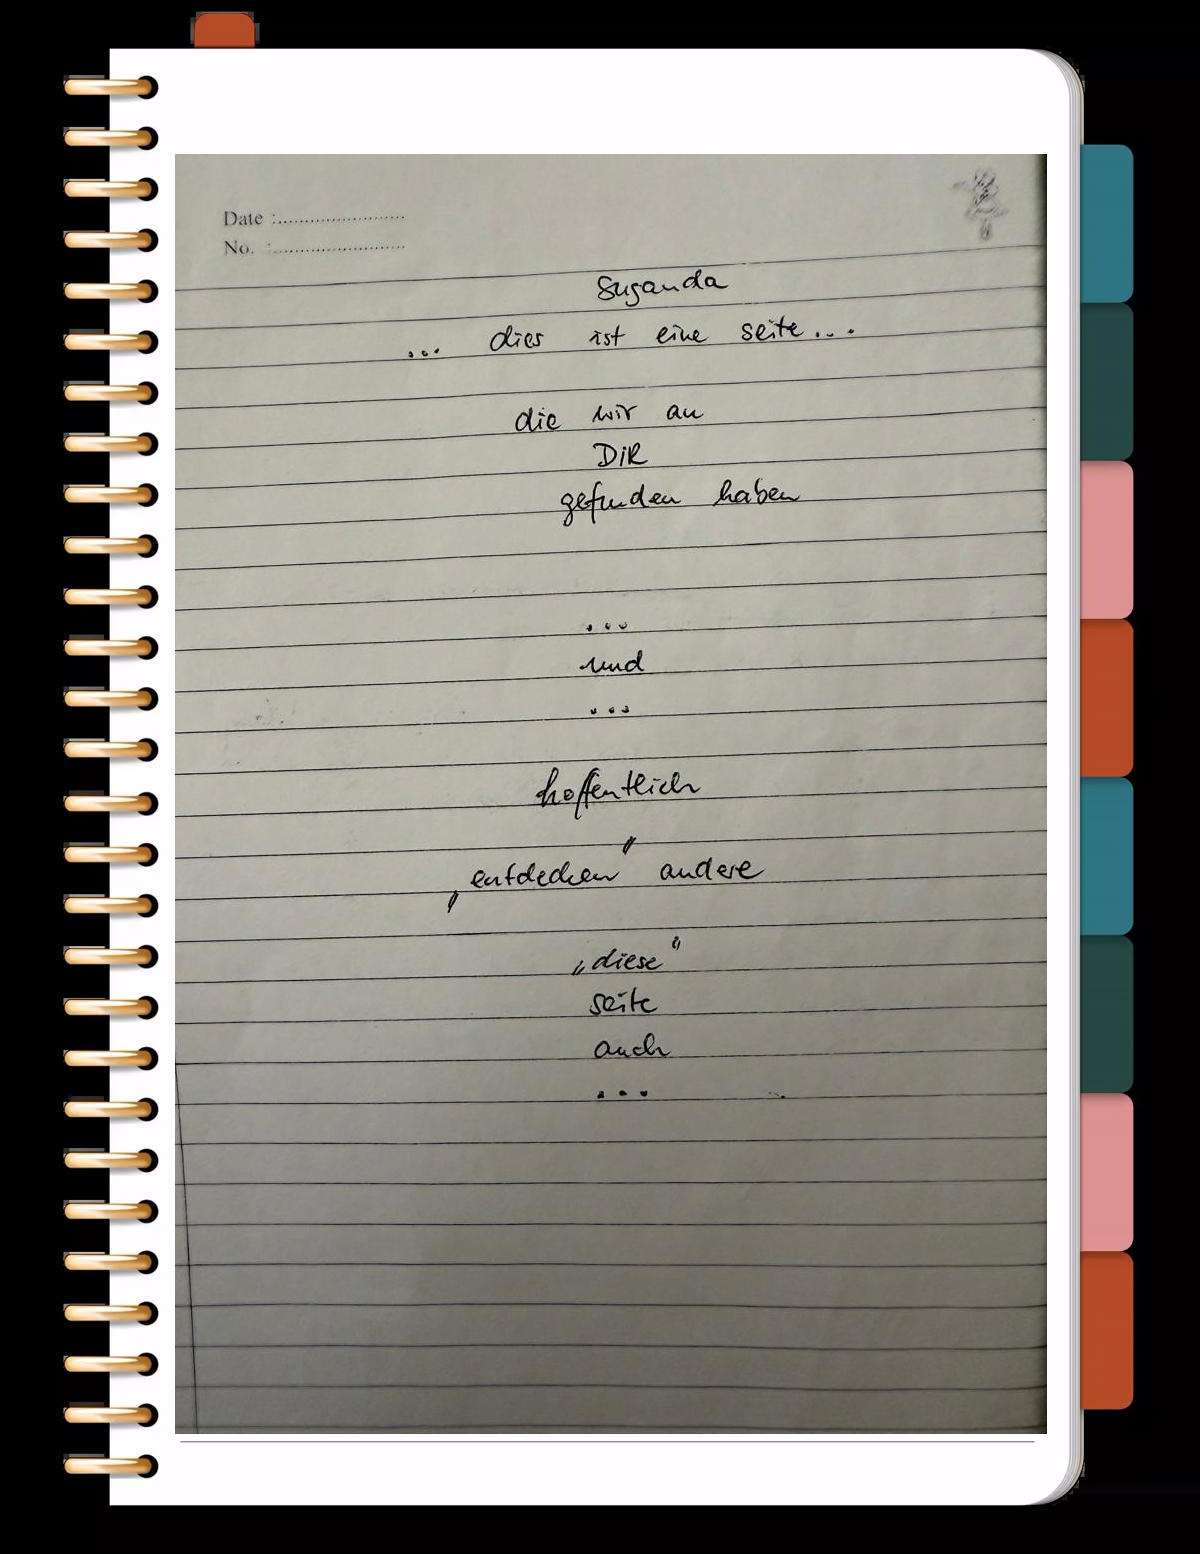 Date :........................
No. :.........................
Suganda
... dies ist eine seite...
die wir an
DiR
gefunden haben
...
und
...
hoffentlich
„entdecken“ andere
„diese“
seite
auch
...